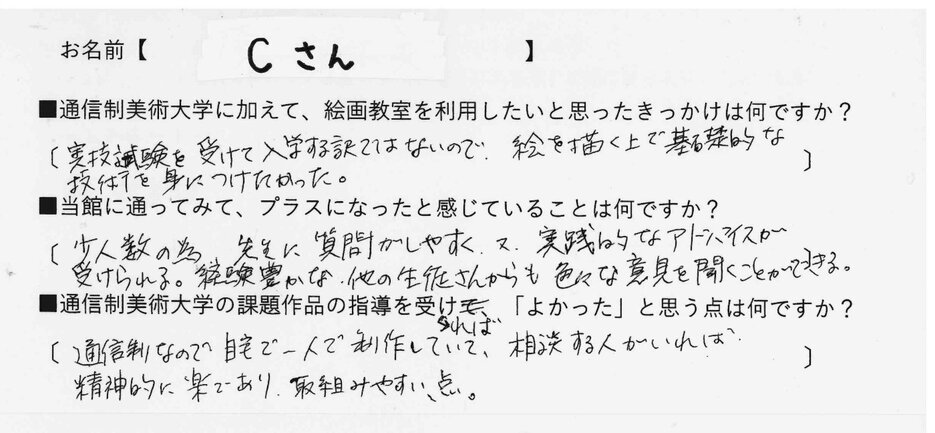 お名前【 Cさん 】
■通信制美術大学に加えて、絵画教室を利用したいと思ったきっかけは何ですか？
〔実技試験を受けて入学する訳ではないので、絵を描く上で基礎的な
技術を身につけたかった。〕
■当館に通ってみて、プラスになったと感じていることは何ですか？
〔少人数の為、先生に質問がしやすく、又、実践的なアドバイスが
受けられる。経験豊かな他の生徒さんからも色々な意見を聞くことができる。〕
■通信制美術大学の課題作品の指導を受け、「よかった」と思う点は何ですか？
られば
〔通信制なので自宅で一人で制作していて、相談する人がいれば
精神的に楽であり、取組みやすい点。〕